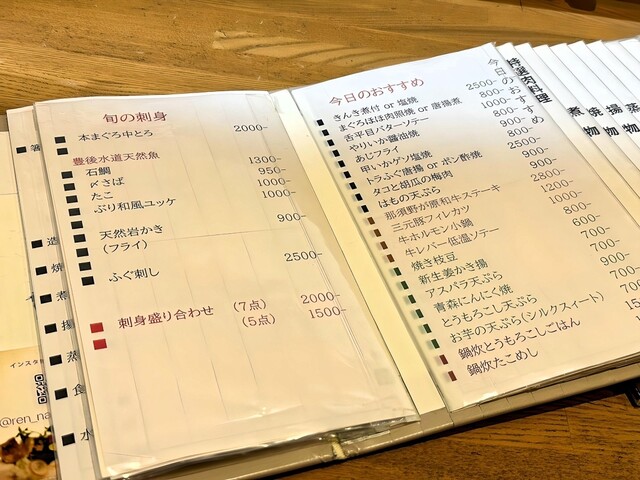 旬の刺身
本まぐろ中とろ 2000-
豊後水道天然魚
石鯛 1300-
〆さば 950-
たこ 1000-
ぶり和風ユッケ 1000-
天然岩かき 900-
(フライ)
ふぐ刺し 2500-
刺身盛り合わせ (7点) 2000-
(5点) 1500-
今日のおすすめ
きんき煮付 or 塩焼 2500-
まぐろほほ肉照焼 or 唐揚煮 800-
舌平目バターソテー 1000-
やりいか醤油焼 800-
あじフライ
甲いかゲソ塩焼
トラふぐ唐揚 or ポン酢焼
タコと胡瓜の梅肉
はもの天ぷら
那須野が原和牛ステーキ 2800-
三元豚フィレカツ 1200-
牛ホルモン小鍋 1000-
牛レバー低温ソテー 800-
焼き枝豆 600-
新生姜かき揚 700-
アスパラ天ぷら 900-
青森にんにく焼
とうもろこし天ぷら
お芋の天ぷら(シルクスイート)
鍋炊とうもろこしごはん
鍋炊たこめし
今日のおすすめ
特選肉料理
煮物
焼物
揚物
蒸
造
焼
煮
揚
蒸
食
水
インスタ
@ren_na